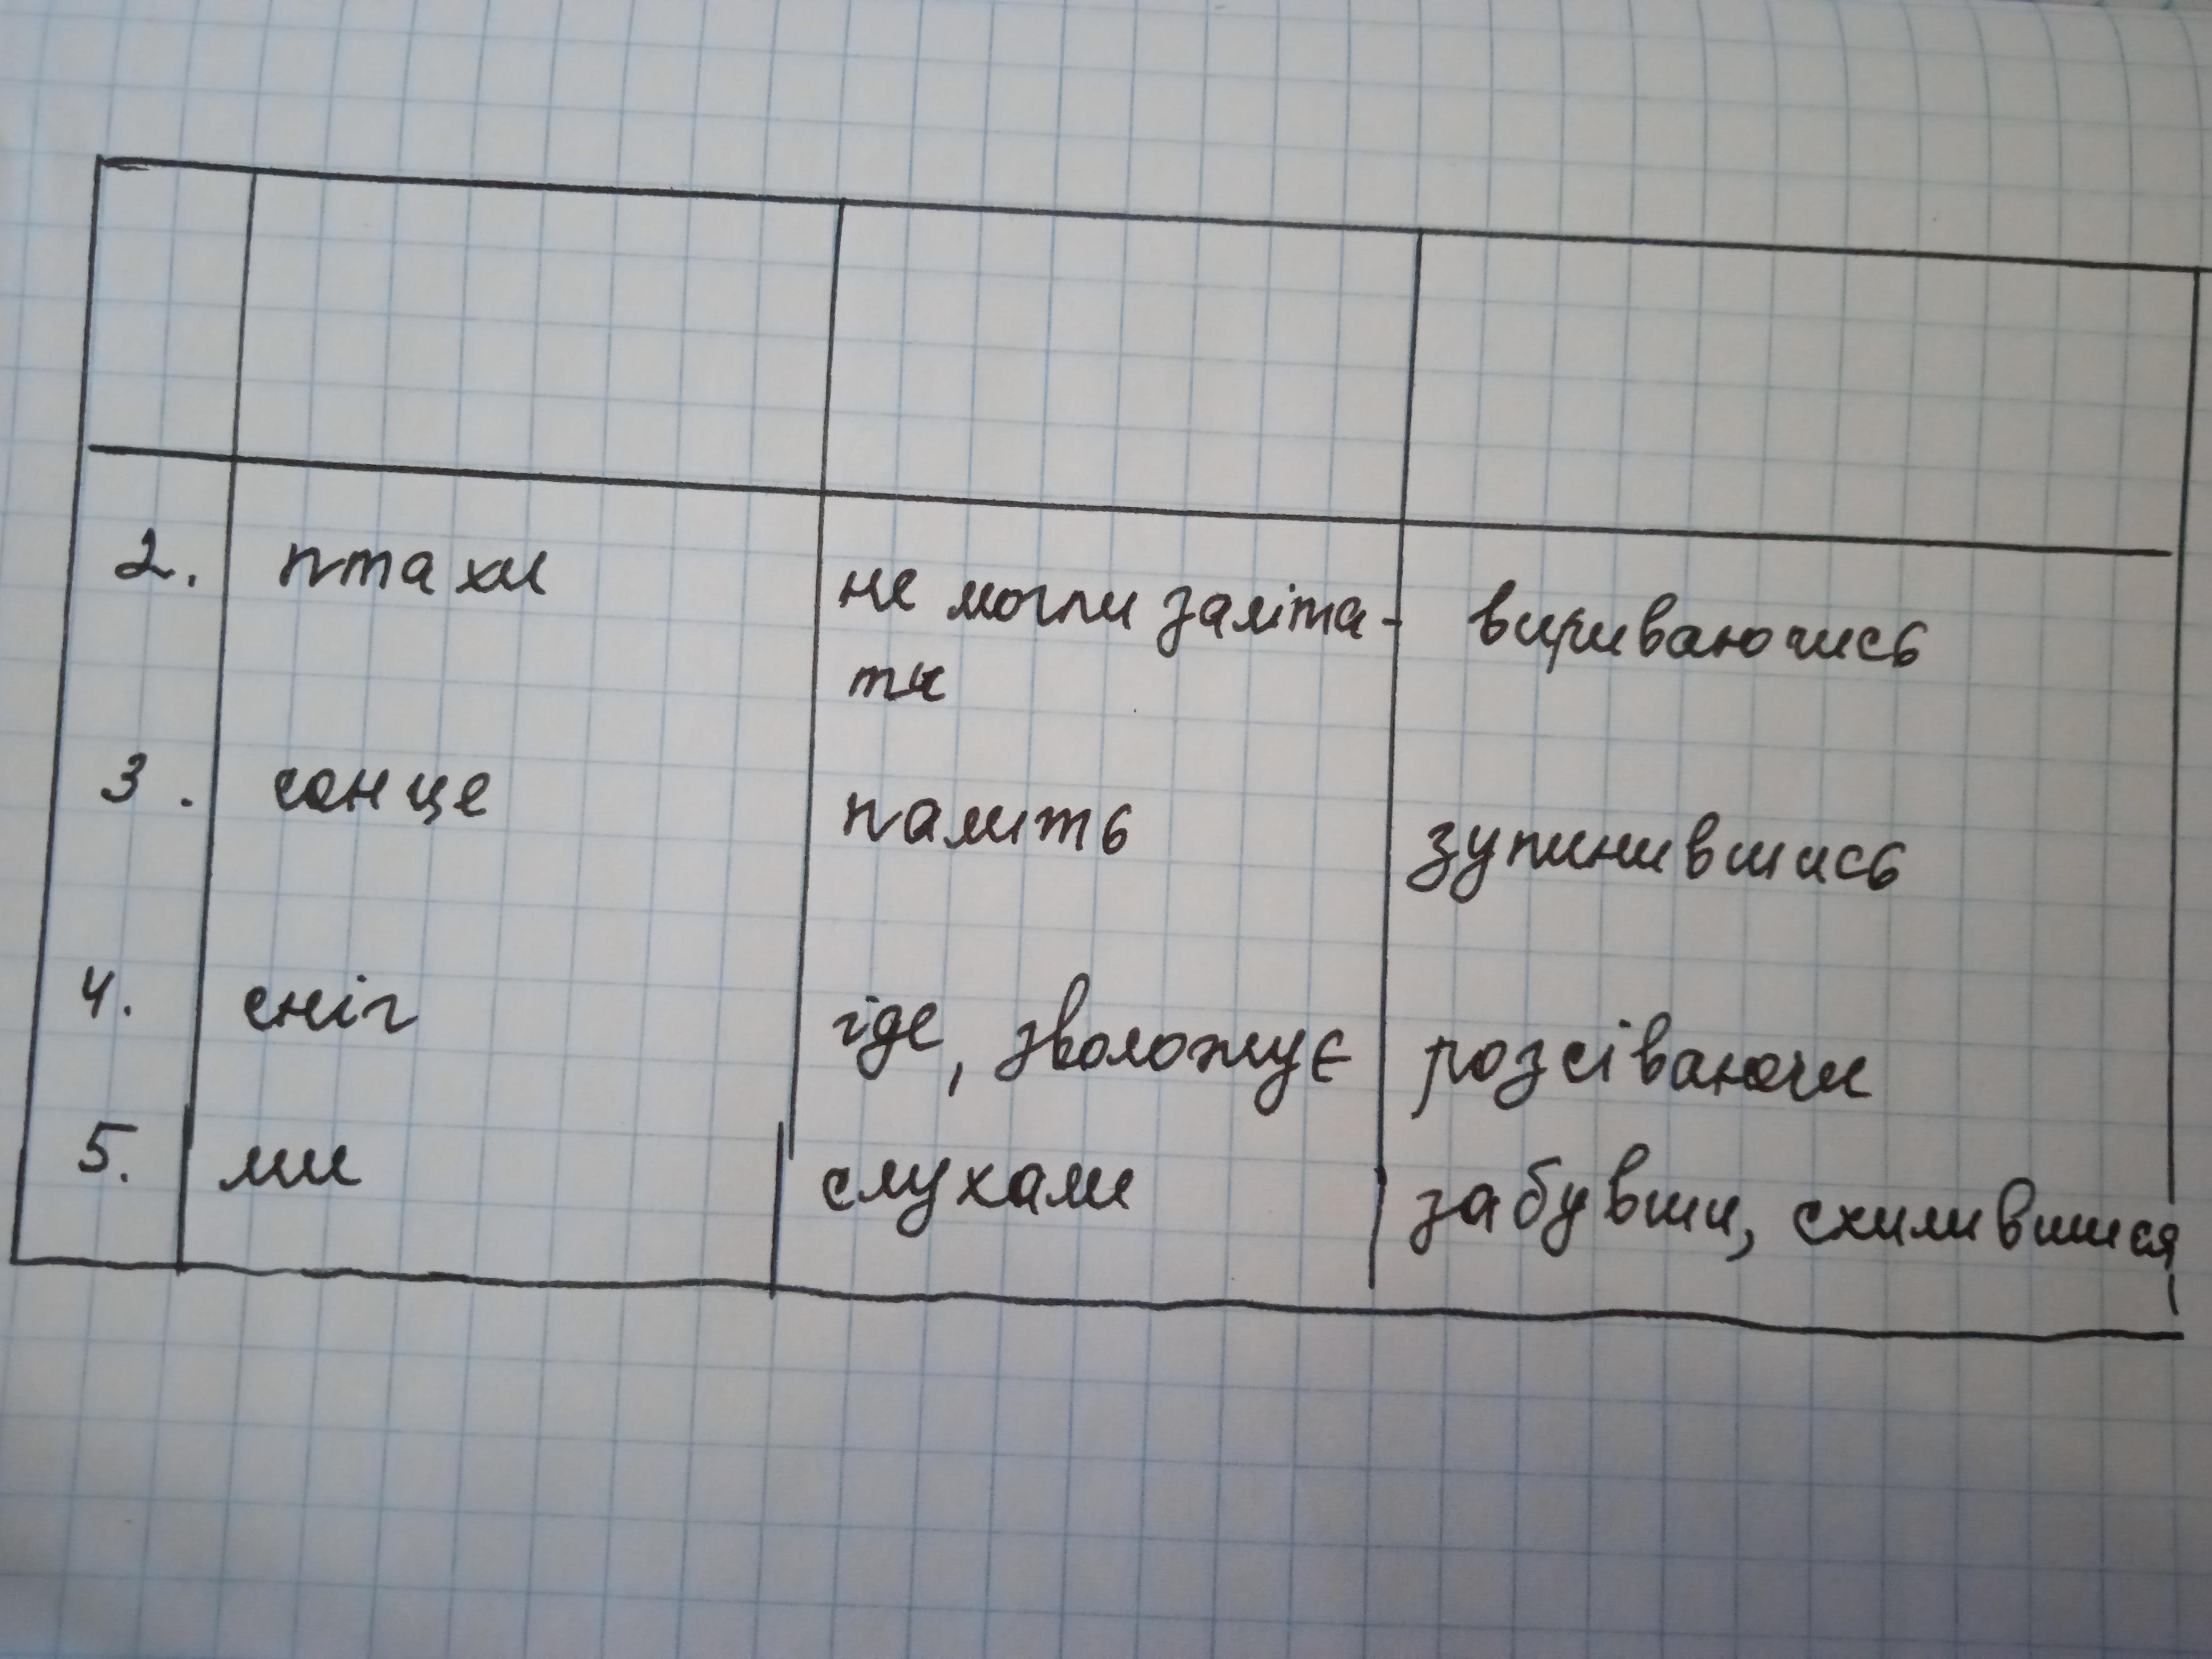 2. птахи не могли заліта- вириваючись
ти
3. сонце палить зупинившись
4. сніг іде, зволожує розсіваючи
5. ми слухали забувши, схилившися